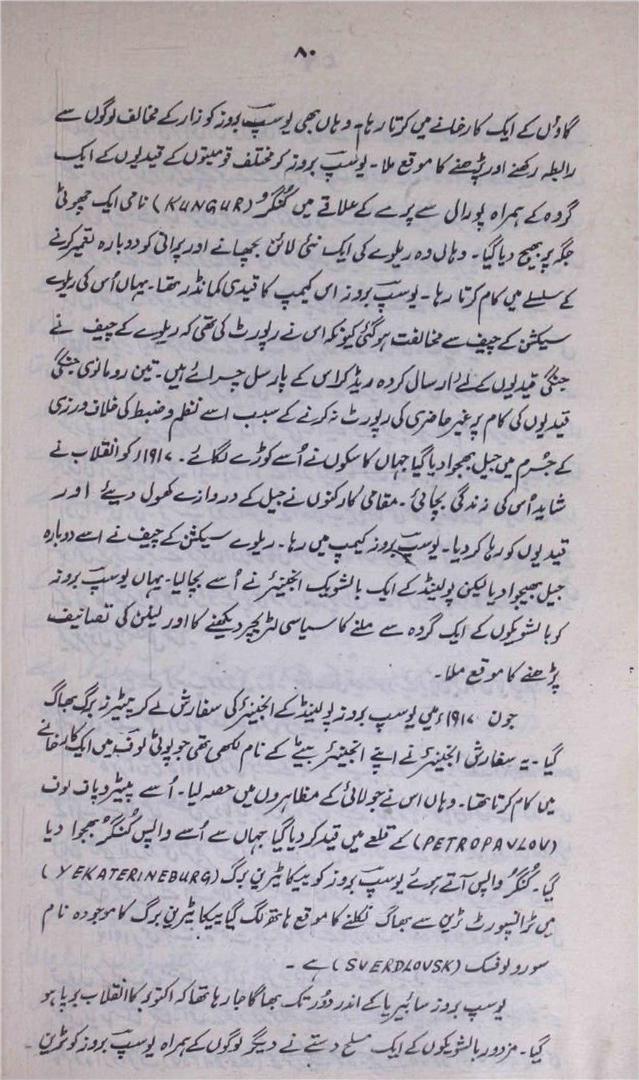 ۸۰
گاؤں کے ایک کارخانے میں کرتا رہا۔ وہاں بھی یوسپ بروز کو زار کے مخالف لوگوں سے
رابطہ رکھنے اور پڑھنے کا موقع ملا۔ یوسپ بروز کو مختلف قومیتوں کے قیدیوں کے ایک
گروہ کے ہمراہ یورال سے پرے کے علاقے میں کُنگُر (KUNGUR) نامی ایک چھوٹی
جگہ پر بھیج دیا گیا۔ وہاں وہ ریلوے کی ایک نئی لائن بچھانے اور پرانی کو دوبارہ تعمیر کرنے
کے سلسلے میں کام کرتا رہا۔ یوسپ بروز اس کیمپ کا قیدی کمانڈر تھا۔ یہاں اُس کی ریلوے
سیکشن کے چیف سے مخالفت ہو گئی کیونکہ اس نے رپورٹ کی تھی کہ ریلوے کے چیف نے
جنگی قیدیوں کے لئے ارسال کردہ ریڈ کراس کے پارسل چرائے ہیں۔ تین رومانوی جنگی
قیدیوں کی کام پر غیر حاضری کی رپورٹ نہ کرنے کے سبب اسے نظم و ضبط کی خلاف ورزی
کے جُرم میں جیل بھجوا دیا گیا جہاں کاسکوں نے اُسے کوڑے لگائے۔ ۱۹۱۷ء کو انقلاب نے
شاید اُس کی زندگی بچائی۔ مقامی کارکنوں نے جیل کے دروازے کھول دیئے اور
قیدیوں کو رہا کر دیا۔ یوسپ بروز کیمپ میں رہا۔ ریلوے سیکشن کے چیف نے اسے دوبارہ
جیل بھیجوا دیا لیکن پولینڈ کے ایک بالشویک انجینئر نے اُسے بچا لیا۔ یہاں یوسپ بروز
کو بالشویکوں کے ایک گروہ سے ملنے کا سیاسی لٹریچر دیکھنے کا اور لینن کی تصانیف
پڑھنے کا موقع ملا۔
جون ۱۹۱۷ء میں یوسپ بروز پولینڈ کے انجینئر کی سفارش لے کر پیٹرز برگ بھاگ
گیا۔ یہ سفارش انجینئر نے اپنے انجینئر بیٹے کے نام لکھی تھی جو پوٹی لوف میں ایک کارخانے
میں کام کرتا تھا۔ وہاں اس نے جولائی کے مظاہروں میں حصہ لیا۔ اُسے پیٹروپاف لوف
(PETROPAVLOV) کے قلعے میں قید کر دیا گیا جہاں سے اُسے واپس کُنگُر بھجوا دیا
گیا۔ کُنگُر واپس آتے ہوئے یوسپ بروز کو ییکاٹیرین برگ (YEKATERINEBURG)
میں ٹرانسپورٹ ٹرین سے بھاگ نکلنے کا موقع ہاتھ لگ گیا ییکاٹیرین برگ کا موجودہ نام
سورولوفسک (SVERDLOVSK) ہے۔
یوسپ بروز سائبیریا کے اندر دُور تک بھاگا جا رہا تھا کہ اکتوبر کا انقلاب برپا ہو
گیا۔ مزدور بالشویکوں کے ایک مسلح دستے نے دیگر لوگوں کے ہمراہ یوسپ بروز کو ٹرین